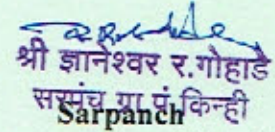 श्री ज्ञानेश्वर र.गोहाडे
सरपंच ग्रा.पं.किन्ही
Sarpanch